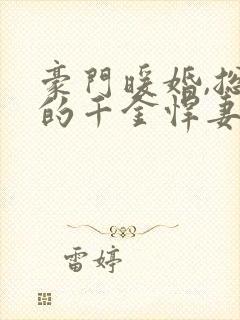 豪門暖婚,總
的千金悍妻
雷婷